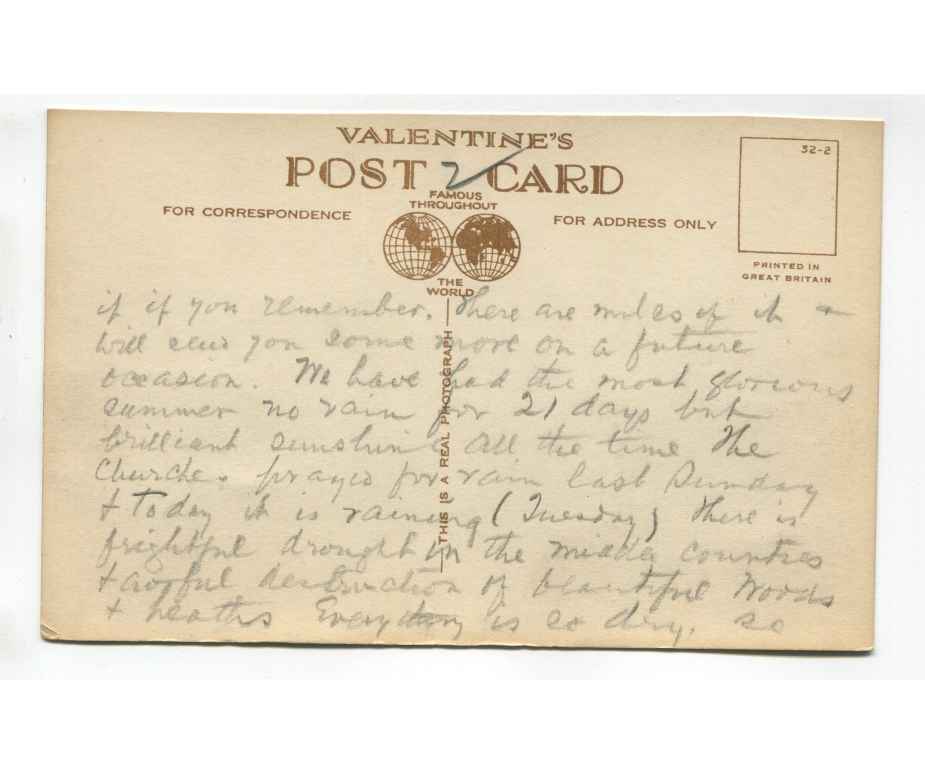 VALENTINE'S
POST CARD
2
FAMOUS
THROUGHOUT
THE
WORLD
FOR CORRESPONDENCE
FOR ADDRESS ONLY
32-2
PRINTED IN
GREAT BRITAIN
THIS IS A REAL PHOTOGRAPH
if you remember. There are miles of it +
will send you some more on a future
occasion. We have had the most glorious
summer no rain for 21 days but
brilliant sunshine all the time The
Churches prayed for rain last Sunday
+ today it is raining (Tuesday) There is
frightful drought in the middle countries
+ awful destruction of beautiful Woods
+ heaths Everything is so dry. so